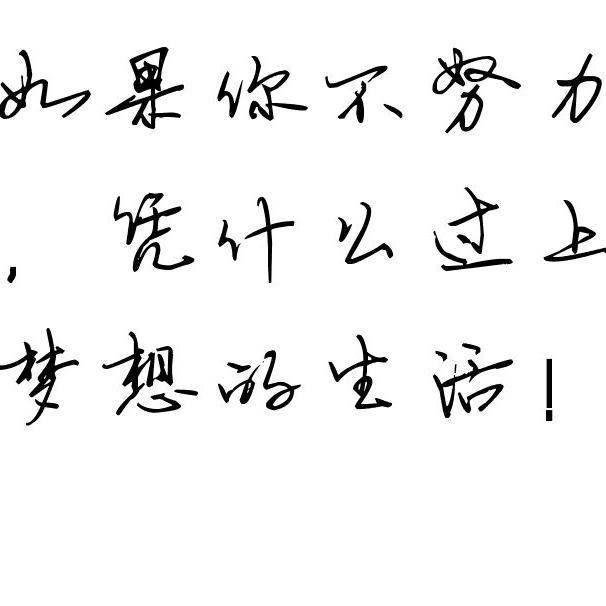 如果你不努力
，凭什么过上
梦想的生活！